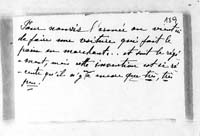 159
Pour nourrir l'armée on vient
de faire une voiture qui fait le
pain en marchant... et suit le régi
ment, mais cette invention est si ré
cente qu'il n'y a encore que très, très
peu.